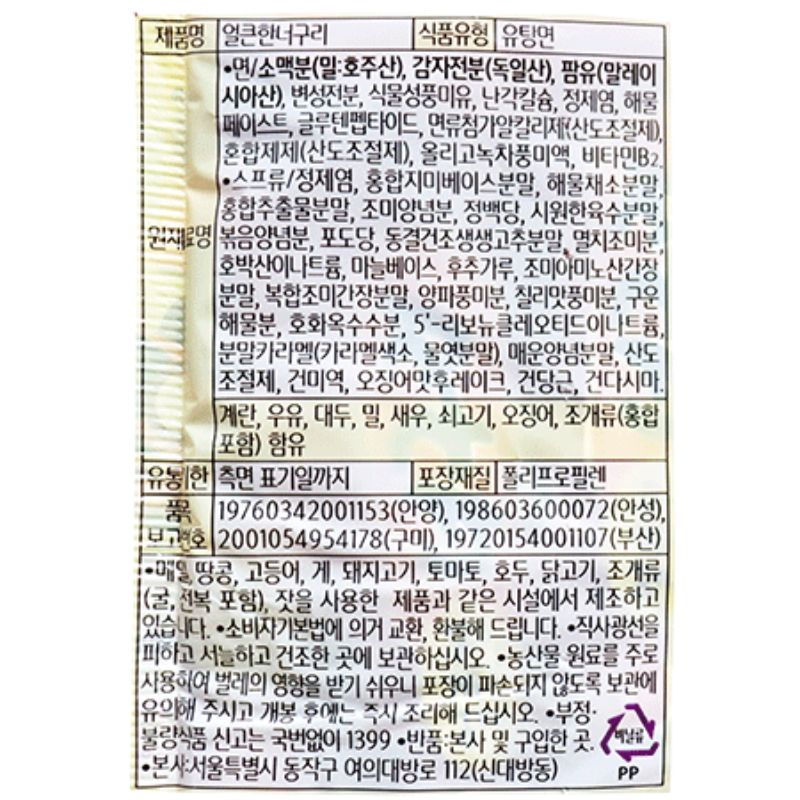 제품명 얼큰한너구리 식품유형 유탕면
•면/소맥분(밀:호주산), 감자전분(독일산), 팜유(말레이
시아산), 변성전분, 식물성풍미유, 난각칼슘, 정제염, 해물
페이스트, 글루텐펩타이드, 면류첨가알칼리제(산도조절제),
혼합제제(산도조절제), 올리고녹차풍미액, 비타민B2.
•스프류/정제염, 홍합지미베이스분말, 해물채소분말,
홍합추출물분말, 조미양념분, 정백당, 시원한육수분말,
원재료명 볶음양념분, 포도당, 동결건조생생고추분말, 멸치조미분,
호박산이나트륨, 마늘베이스, 후추가루, 조미아미노산간장
분말, 복합조미간장분말, 양파풍미분, 칠리맛풍미분, 구운
해물분, 호화옥수수분, 5'-리보뉴클레오티드이나트륨,
분말카라멜(카라멜색소, 물엿분말), 매운양념분말, 산도
조절제, 건미역, 오징어맛후레이크, 건당근, 건다시마.
계란, 우유, 대두, 밀, 새우, 쇠고기, 오징어, 조개류(홍합
포함) 함유
유통기한 측면 표기일까지 포장재질 폴리프로필렌
품목 19760342001153(안양), 198603600072(안성),
보고번호 2001054954178(구미), 19720154001107(부산)
•메밀, 땅콩, 고등어, 게, 돼지고기, 토마토, 호두, 닭고기, 조개류
(굴, 전복 포함), 잣을 사용한 제품과 같은 시설에서 제조하고
있습니다. •소비자기본법에 의거 교환, 환불해 드립니다. •직사광선을
피하고 서늘하고 건조한 곳에 보관하십시오. •농산물 원료를 주로
사용하여 벌레의 영향을 받기 쉬우니 포장이 파손되지 않도록 보관에
유의해 주시고 개봉 후에는 즉시 조리해 드십시오. •부정·
불량식품 신고는 국번없이 1399 •반품:본사 및 구입한 곳.
•본사:서울특별시 동작구 여의대방로 112(신대방동)
비닐류
PP